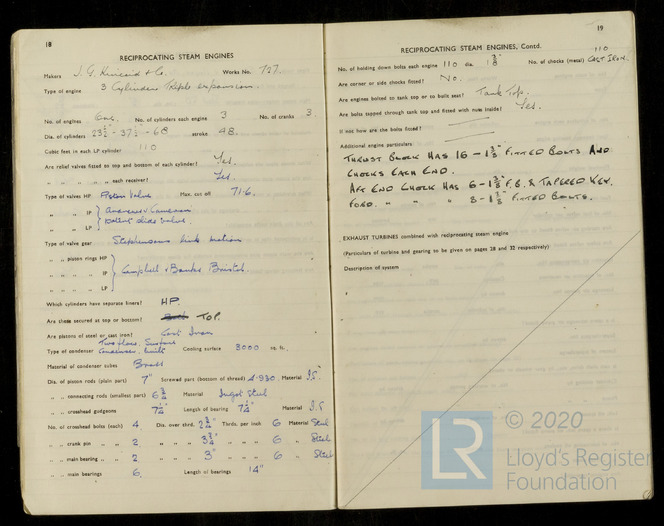 18
RECIPROCATING STEAM ENGINES
Makers J. G. Kincaid & Co. Works No. 727.
Type of engine 3 Cylinders Triple expansion.
No. of engines One. No. of cylinders each engine 3 No. of cranks 3.
Dia. of cylinders 23½ - 37½ - 68 stroke 48.
Cubic feet in each LP cylinder 110
Are relief valves fitted to top and bottom of each cylinder? Yes.
" " " " each receiver? Yes.
Type of valves HP Piston Valve Max. cut off 71.6.
" " IP } Andrews & Cameron
" " LP } slide valve.
Type of valve gear Stephensons link motion
" " piston rings HP
" " " " IP } Campbell & Bristol.
" " " " LP
Which cylinders have separate liners? HP.
Are these secured at top or bottom? TOP.
Are pistons of steel or cast iron? Cast Iron
Two flow, Surface
Type of condenser Condenser, built Cooling surface 3000 sq. ft.
Material of condenser tubes Brass
Dia. of piston rods (plain part) 7" Screwed part (bottom of thread) 4.930 Material I.S.
" " connecting rods (smallest part) 6¾ Material Ingot Steel
" " crosshead gudgeons 7¼" Length of bearing 7¼" Material I.S
No. of crosshead bolts (each) 4. Dia. over thrd. 2¾" Thrds. per inch 6 Material Steel
" " crank pin " 2 " " 3¾" " " " 6 " Steel
" " main bearing " 2 " " 3" " " " 6 " Steel
" " main bearings 6. Length of bearings 14"
19
RECIPROCATING STEAM ENGINES, Contd.
No. of holding down bolts each engine 110 dia. 1⅜" No. of chocks (metal) 110 CAST IRON.
Are corner or side chocks fitted? No.
Are engines bolted to tank top or to built seat? Tank Top.
Are bolts tapped through tank top and fitted with nuts inside? Yes.
If not how are the bolts fitted?
Additional engine particulars
THRUST BLOCK HAS 16 - 1⅜" FITTED BOLTS AND
CHOCKS EACH END.
AFT END CHOCK HAS 6 - 1⅜" F.B. & TAPERED KEY.
FORD. " " " 8 - 1⅜" FITTED BOLTS.
EXHAUST TURBINES combined with reciprocating steam engine
(Particulars of turbine and gearing to be given on pages 28 and 32 respectively)
Description of system
LR
© 2020
Lloyd's Register
Foundation